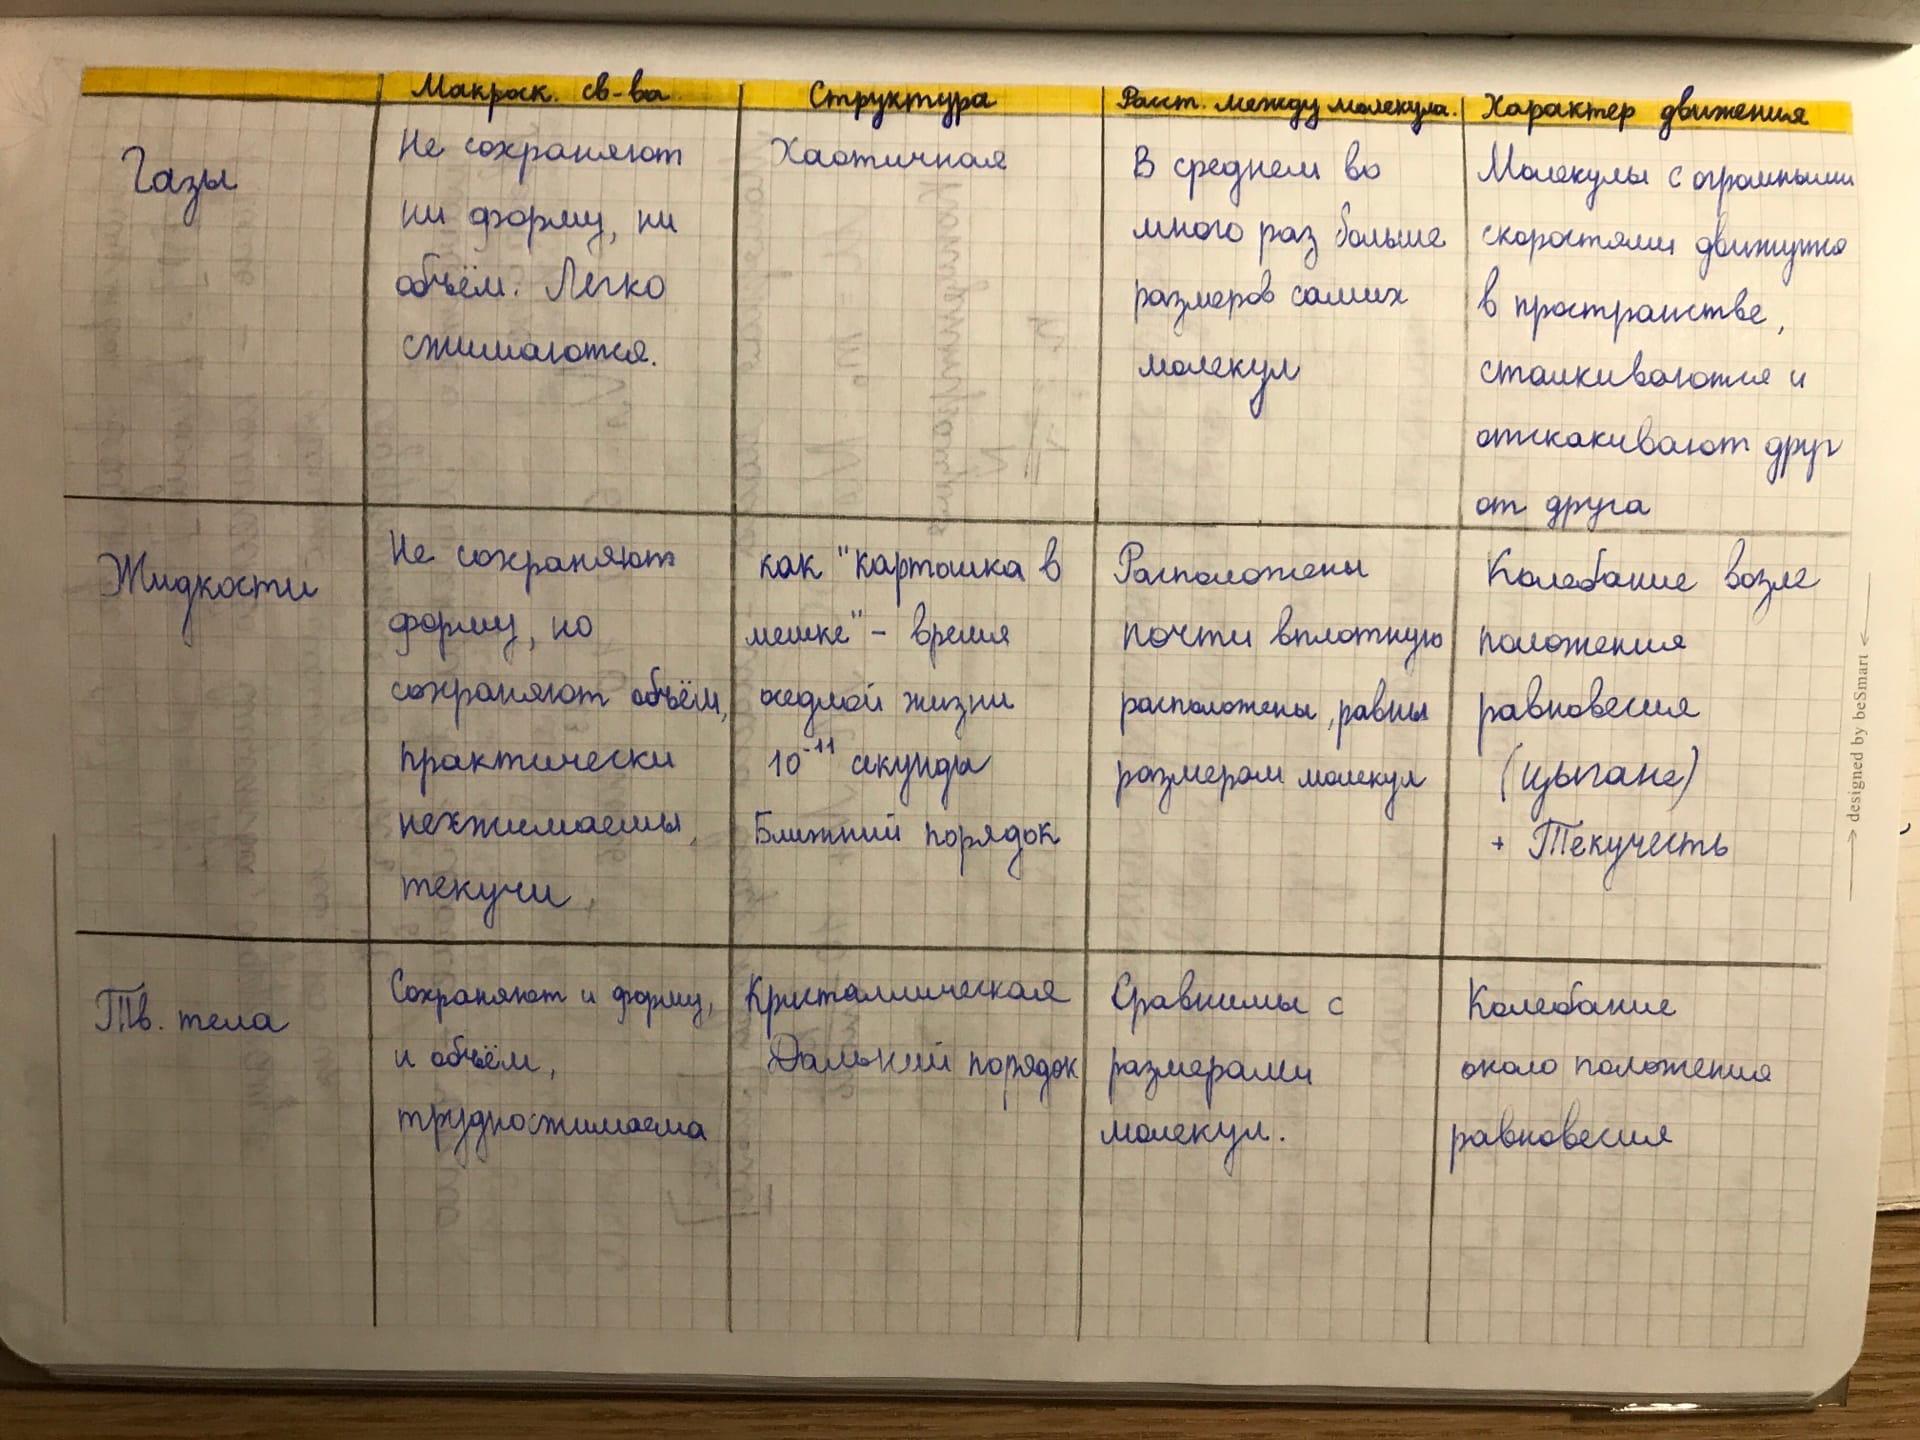 Макроск. св-ва
Структура
Расст. между молекула.
Характер движения
Газы
Не сохраняют
ни форму, ни
объём. Легко
сжимаются.
Хаотичная
В среднем во
много раз больше
размеров самих
молекул
Молекулы с огромными
скоростями движутся
в пространстве,
сталкиваются и
отскакивают друг
от друга
Жидкости
Не сохраняют
форму, но
сохраняют объём,
практически
несжимаемы,
текучи
как "картошка в
мешке" - время
оседлой жизни
10⁻¹¹ секунды
Ближний порядок
Расположены
почти вплотную
расположены, равны
размерам молекул
Колебание возле
положения
равновесия
(цыгане)
+ Текучесть
Тв. тела
Сохраняют и форму,
и объём,
трудносжимаема
Кристаллическая
Дальний порядок
Сравнимы с
размерами
молекул.
Колебание
около положения
равновесия
designed by beSmart